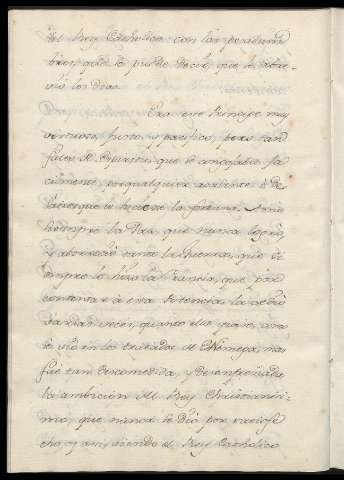 del Rey Catholico con tan pesadum
bre, que se puede decir, que le abre-
vió los dias.
Era este Principe muy
virtuoso, justo, y pacifico, pero tan
falto de espiritu, que se congojaba fa
cilmente, por qualquier accidente de
la fortuna. Amó
siempre la Paz, que nunca logró,
y aborreció tanto la Guerra, que si
empre le hizo la Francia, que por
contentar à esta Potencia, la cedió
varias veces, quanto ella quiso, como
se vió en los tratados de Nimega, mas
fue tan descomedida, y desenfrenada
la ambicion del Rey Christianis-
mo, que nunca se dió por satisfe
cho, y assi viendo el Rey Catholico